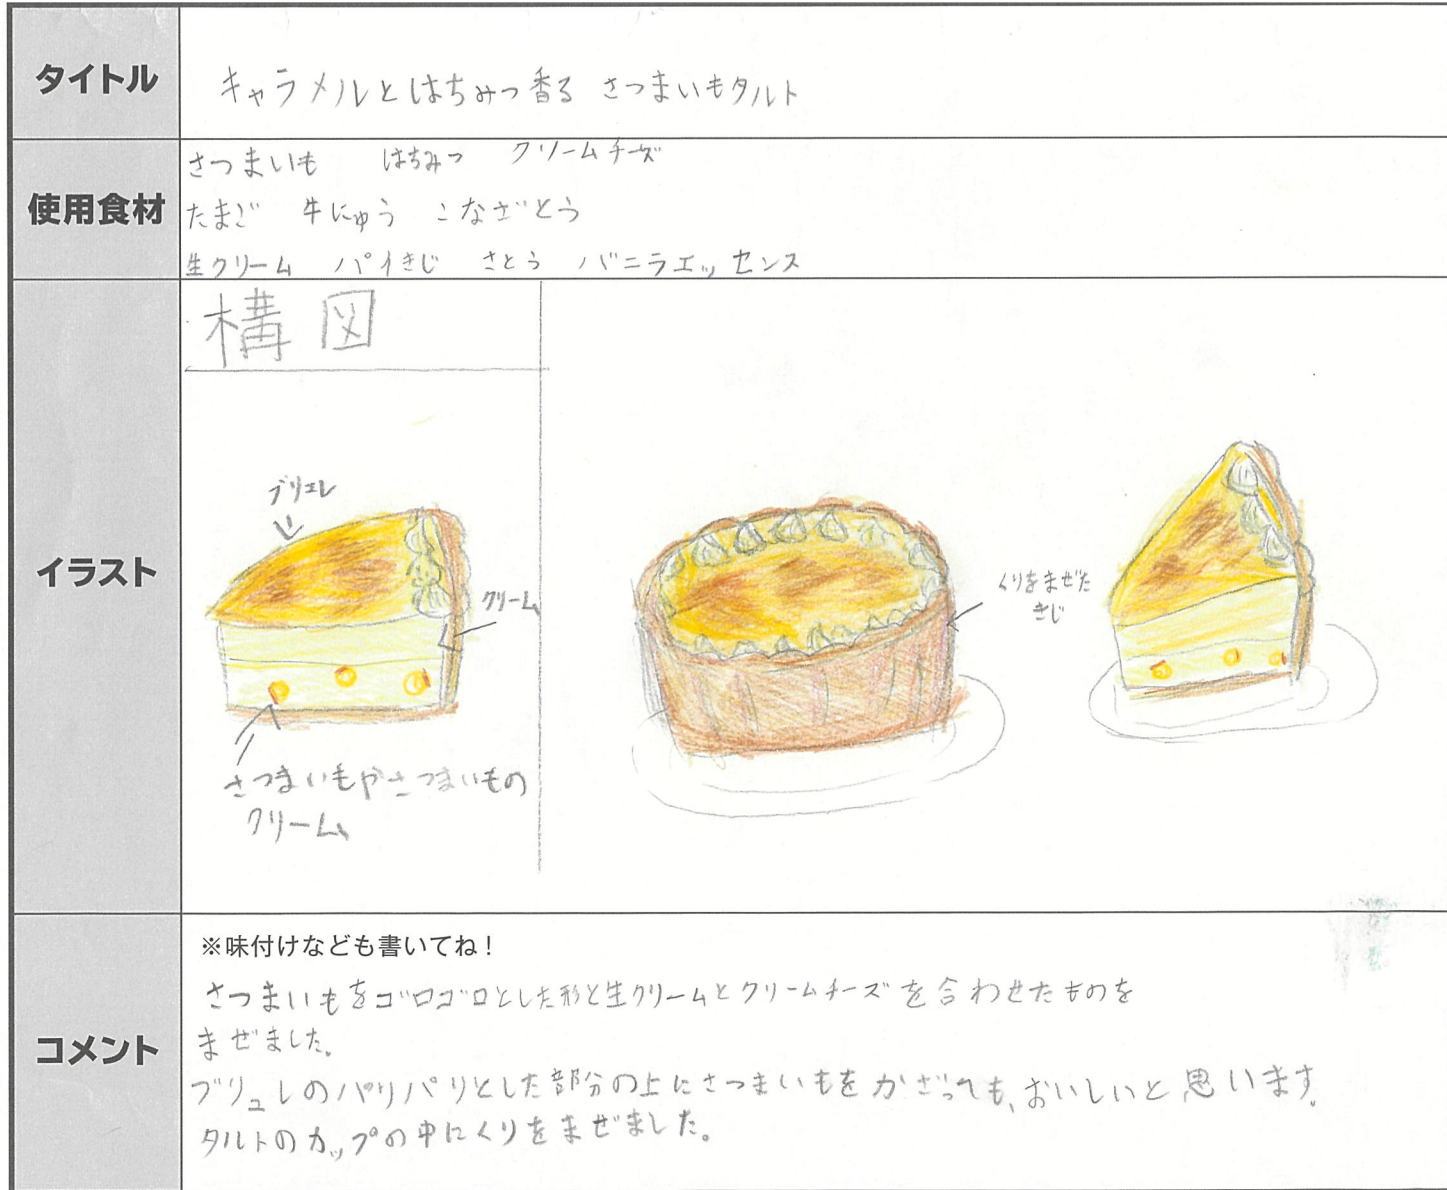 タイトル
キャラメルとはちみつ香る さつまいもタルト
使用食材
さつまいも はちみつ クリームチーズ
たまご 牛にゅう こなざとう
生クリーム パイきじ さとう バニラエッセンス
イラスト
構図
ブリュレ
クリーム
さつまいもやさつまいもの
クリーム
くりをまぜた
きじ
コメント
※味付けなども書いてね!
さつまいもをゴロゴロとした形と生クリームとクリームチーズを合わせたものを
まぜました。
ブリュレのパリパリとした部分の上にさつまいもをかざっても、おいしいと思います。
タルトのカップの中にくりをまぜました。